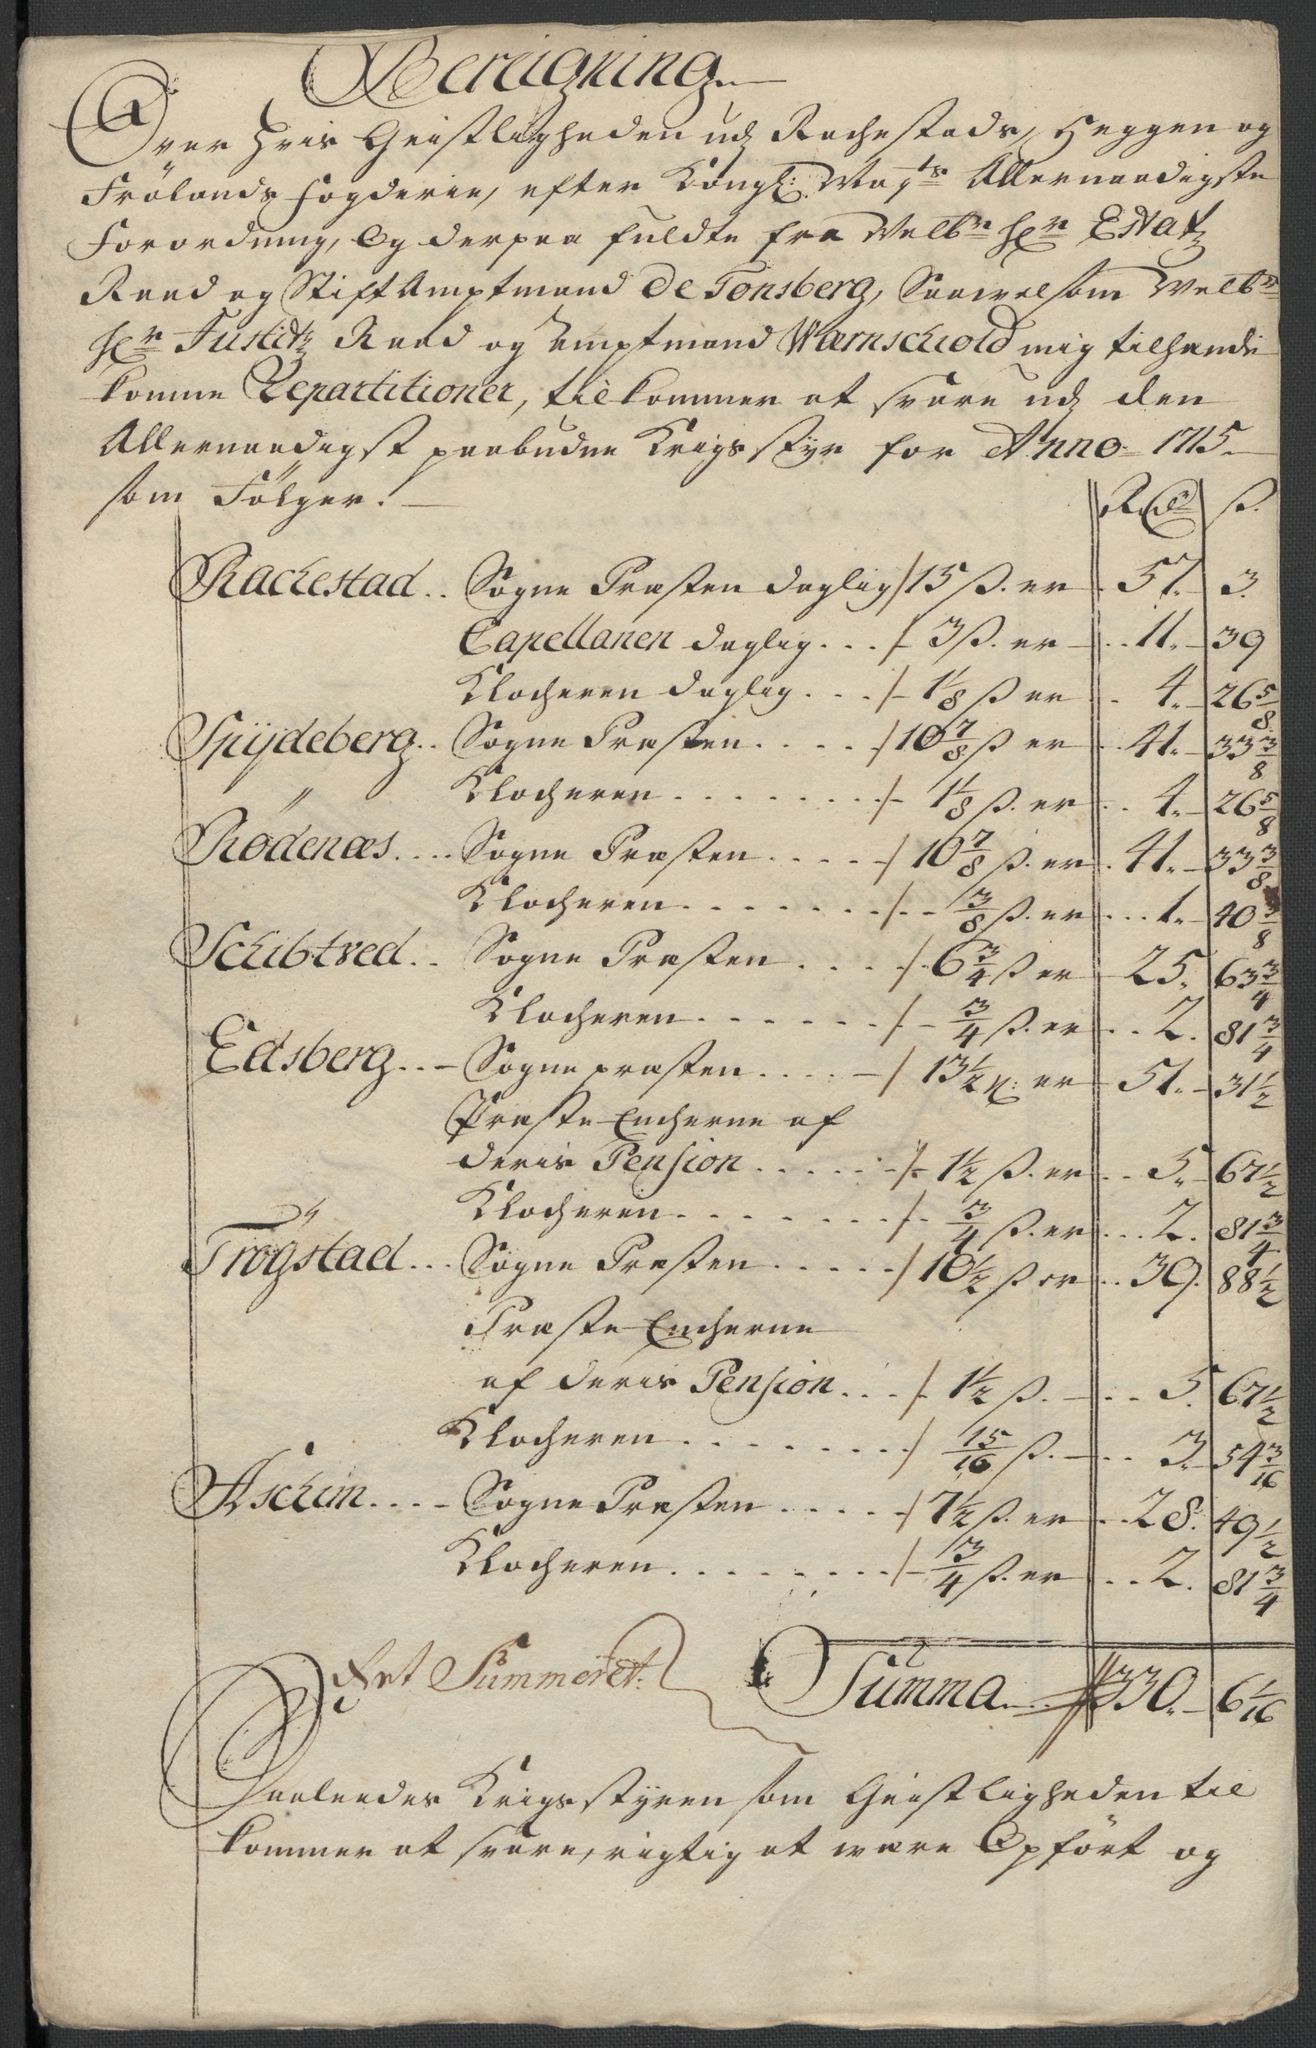 Beregning.
Over Hvis Geistligheden udj Rachestads, Heggen og
Frölands Fogderie, efter Kongl: May:ts Allernaadigste
Forordning, Og derpaa fuldte fra Welb:ne Hr:n Etatz
Raad og StiftAmptmand De Tonsberg, Saavelsom Welb:ne
Hr:n Justitz Raad og Amptmand Wærnschiold mig tilhænde
komne Repartitioner, tilkommer at svare udj den
Allernaadigst paabudne Krigsstyr for Anno 1715.
som Fölger.
Rdl ß.
Rachestad.. Sogne Præsten daglig /15 ß. er 57. 3.
Capellanen daglig... /- 3 ß. er .. 11. 39
Klocheren daglig... /- 1 1/8 ß er .. 4. 26 5/8
Spÿdeberg.. Sogne Præsten..... /10 7/8 ß er .. 41. 33 3/8
Klocheren....... /- 1 1/8 ß. er .. 4. 26 5/8
Rödenæs.... Sogne Præsten..... /10 7/8 ß. er . 41. 33 3/8
Klocheren....... /- 3/8 ß. er ... 1. 40 3/8
Schibtved.. Sogne Præsten.... /- 6 3/4 ß er 25. 63 3/4
Klocheren...... /- 3/4 ß. er .. 2. 81 3/4
Edsberg... Sogne præsten.... /13 1/2 ß: er 51. 31 1/2
Præste Encherne af
deris Pension..... /- 1 1/2 ß. er ... 5. 67 1/2
Klocheren....... /- 3/4 ß. er ... 2. 81 3/4
Trögstad... Sogne Præsten..... /10 1/2 ß er .. 39. 88 1/2
Præste Encherne
af deris Pension... /- 1 1/2 ß. ... 5. 67 1/2
Klocheren....... / 15/16 ß. ... 3. 54 3/16
Aschim.... Sogne Præsten..... /7 1/2 ß. er .. 28. 49 1/2
Klocheren....... /- 3/4 ß. er ... 2. 81 3/4
Ret Summeret. Summa.... 330. 6 1/16
Saaledes Krigsstyren som Geistligheden til
kommer at svare, rigtig at være Opfört og